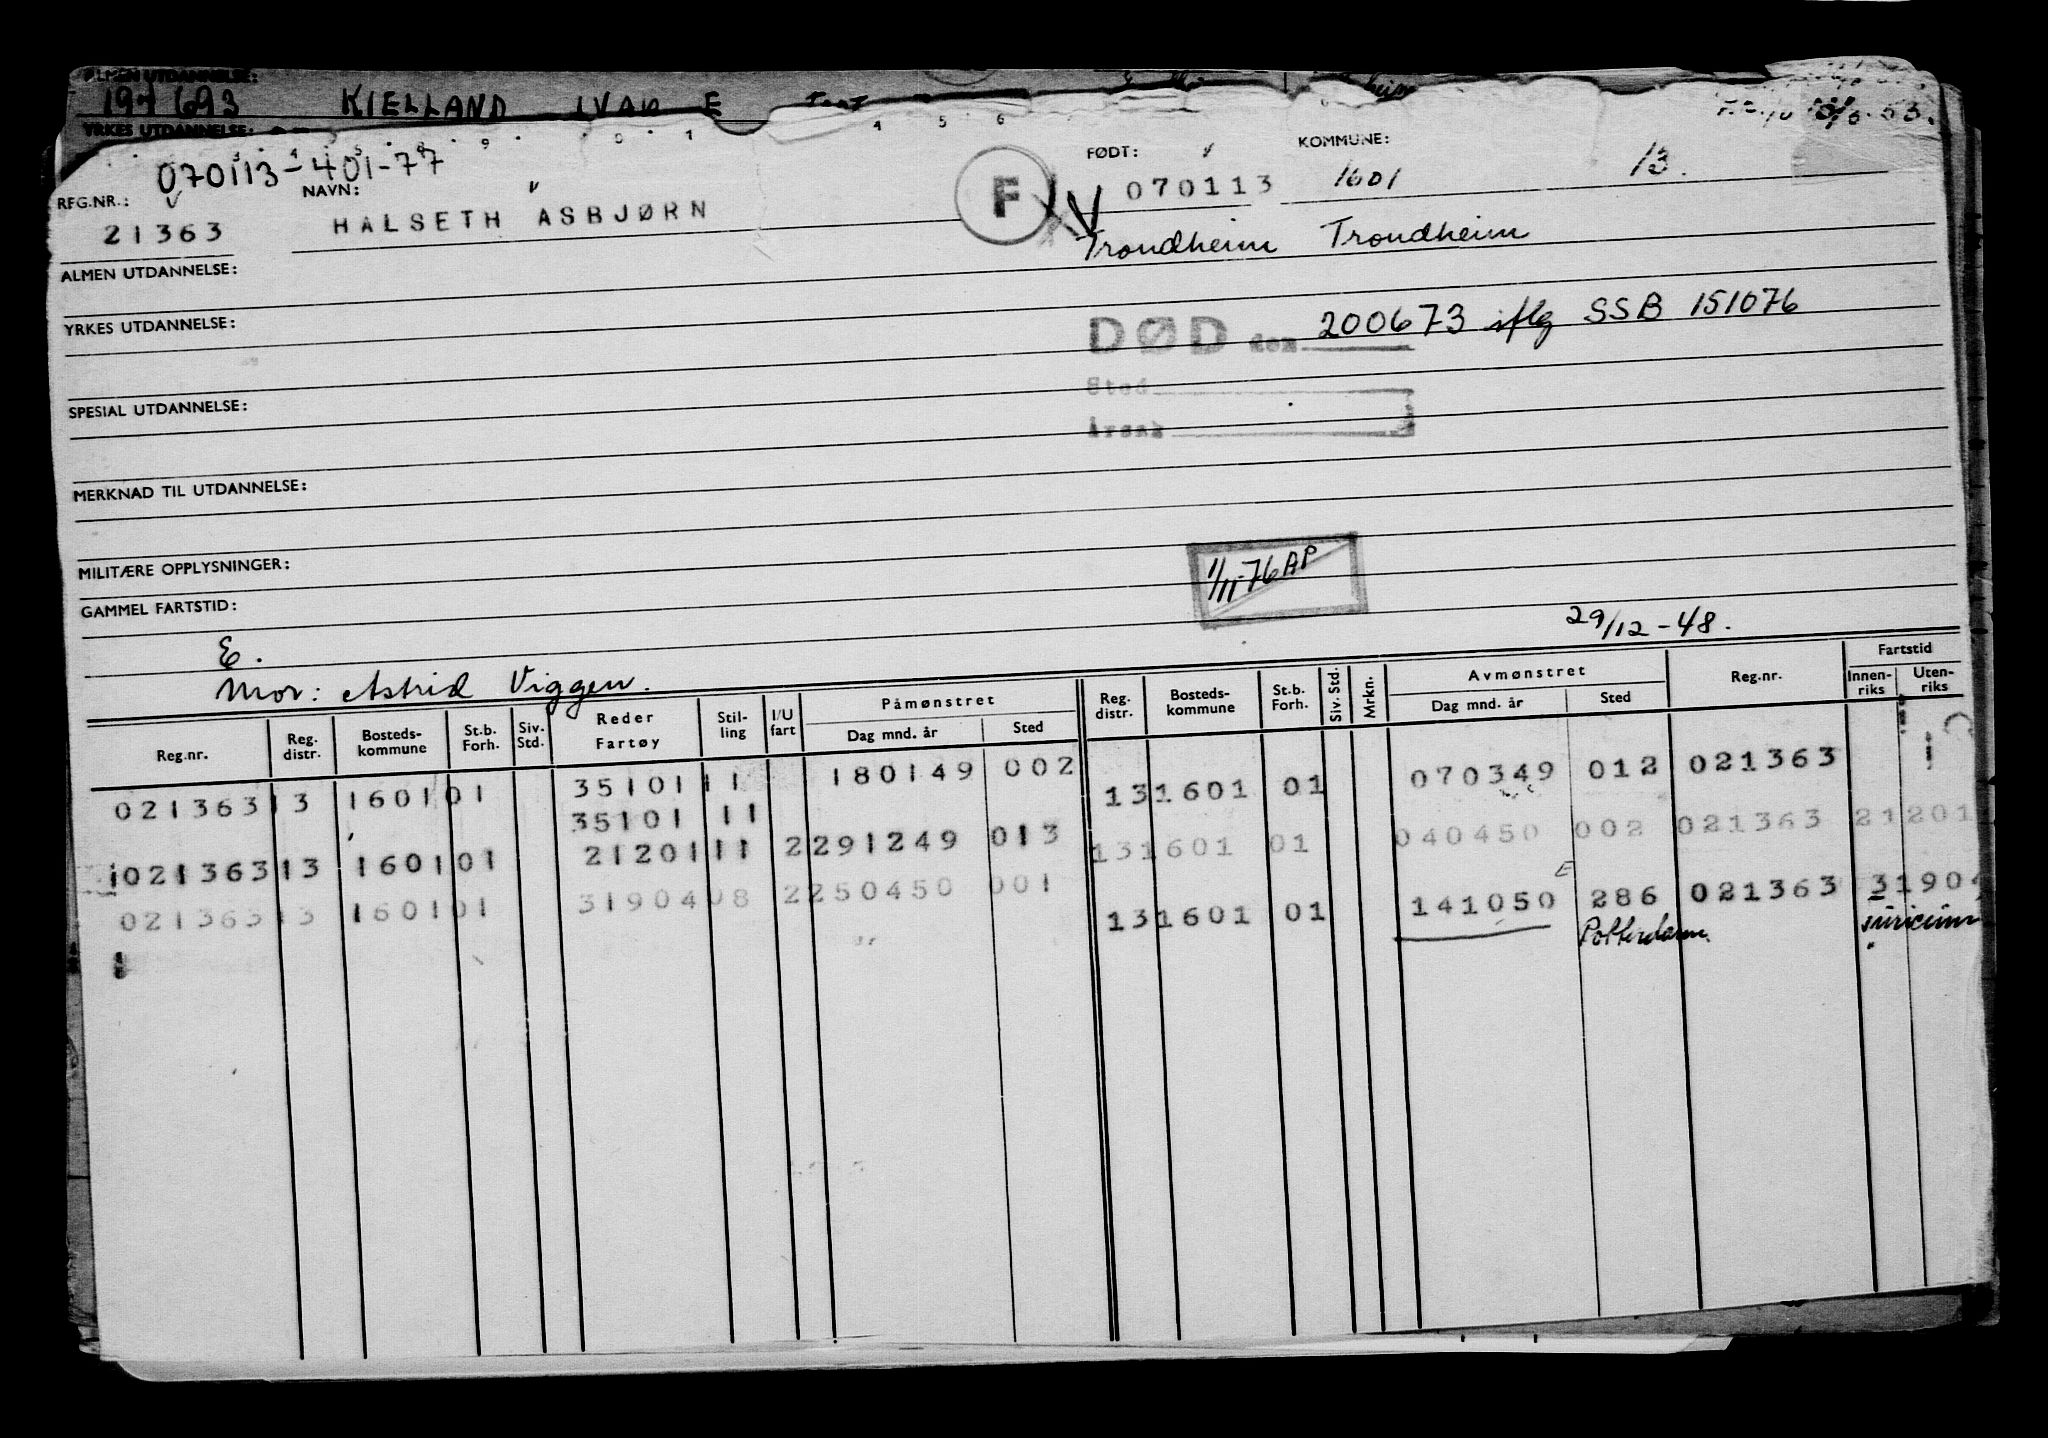 ALMEN UTDANNELSE:
693 KIELLAND IVAR E
YRKES UTDANNELSE:
4 5 6
070113-401-77
FØDT: KOMMUNE:
REG.NR.: NAVN: F 070113 1601 13.
21363 HALSETH ASBJØRN
Trondheim Trondheim
ALMEN UTDANNELSE:
YRKES UTDANNELSE:
DØD den 200673 iflg SSB 151076
Sted
SPESIAL UTDANNELSE:
Årsak
MERKNAD TIL UTDANNELSE:
MILITÆRE OPPLYSNINGER:
1/11-76 AP
GAMMEL FARTSTID:
E. 29/12-48.
Mor: Astrid Viggen.
Reg.nr. Reg. distr. Bosteds-kommune St.b. Forh. Siv. Std. Reder Fartøy Stil-ling I/U fart Påmønstret Dag mnd. år Sted Reg. distr. Bosteds-kommune St.b. Forh. Siv. Std. Mrkn. Avmønstret Dag mnd. år Sted Reg.nr. Fartstid Innen-riks Uten-riks
021363 13 1601 01 35101 11 180149 002 13 1601 01 070349 012 021363
35101 11
021363 13 1601 01 21201 11 2 291249 013 13 1601 01 040450 002 021363 21201
021363 13 1601 01 31904 08 2 250450 001 13 1601 01 141050 E 286 021363 31904
Rotterdam